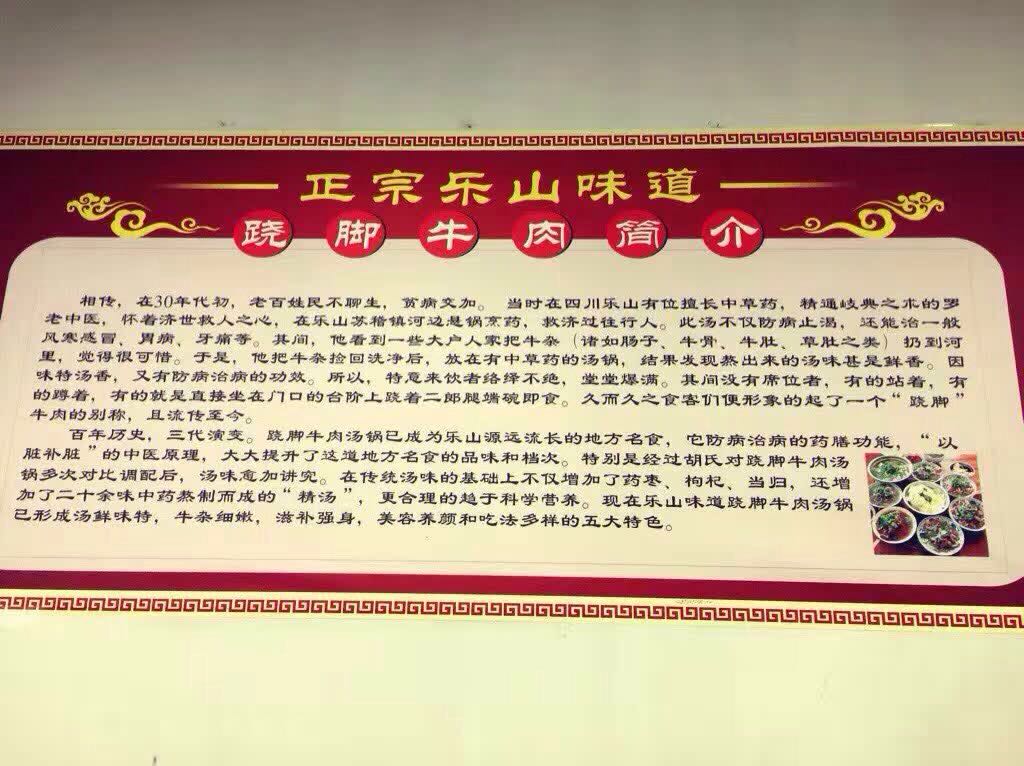 正宗乐山味道
跷脚牛肉简介
相传，在30年代初，老百姓民不聊生，贫病交加。当时在四川乐山有位擅长中草药，精通岐典之术的罗
老中医，怀着济世救人之心，在乐山苏稽镇河边悬锅烹药，救济过往行人。此汤不仅防病止渴，还能治一般
风寒感冒，胃病、牙痛等。其间，他看到一些大户人家把牛杂（诸如肠子、牛骨、牛肚、草肚之类）扔到河
里，觉得很可惜。于是，他把牛杂捡回洗净后，放在有中草药的汤锅，结果发现熬出来的汤味甚是鲜香。因
味特汤香，又有防病治病的功效。所以，特意来饮者络绎不绝，堂堂爆满。其间没有席位者，有的站着，有
的蹲着，有的就是直接坐在门口的台阶上跷着二郎腿端碗即食。久而久之食客们便形象的起了一个“跷脚”
牛肉的别称，且流传至今。
百年历史，三代演变。跷脚牛肉汤锅已成为乐山源远流长的地方名食，它防病治病的药膳功能，“以
脏补脏”的中医原理，大大提升了这道地方名食的品味和档次。特别是经过胡氏对跷脚牛肉汤
锅多次对比调配后，汤味愈加讲究。在传统汤味的基础上不仅增加了药枣、枸杞、当归，还增
加了二十余味中药熬制而成的“精汤”，更合理的趋于科学营养。现在乐山味道跷脚牛肉汤锅
已形成汤鲜味特，牛杂细嫩，滋补强身，美容养颜和吃法多样的五大特色。